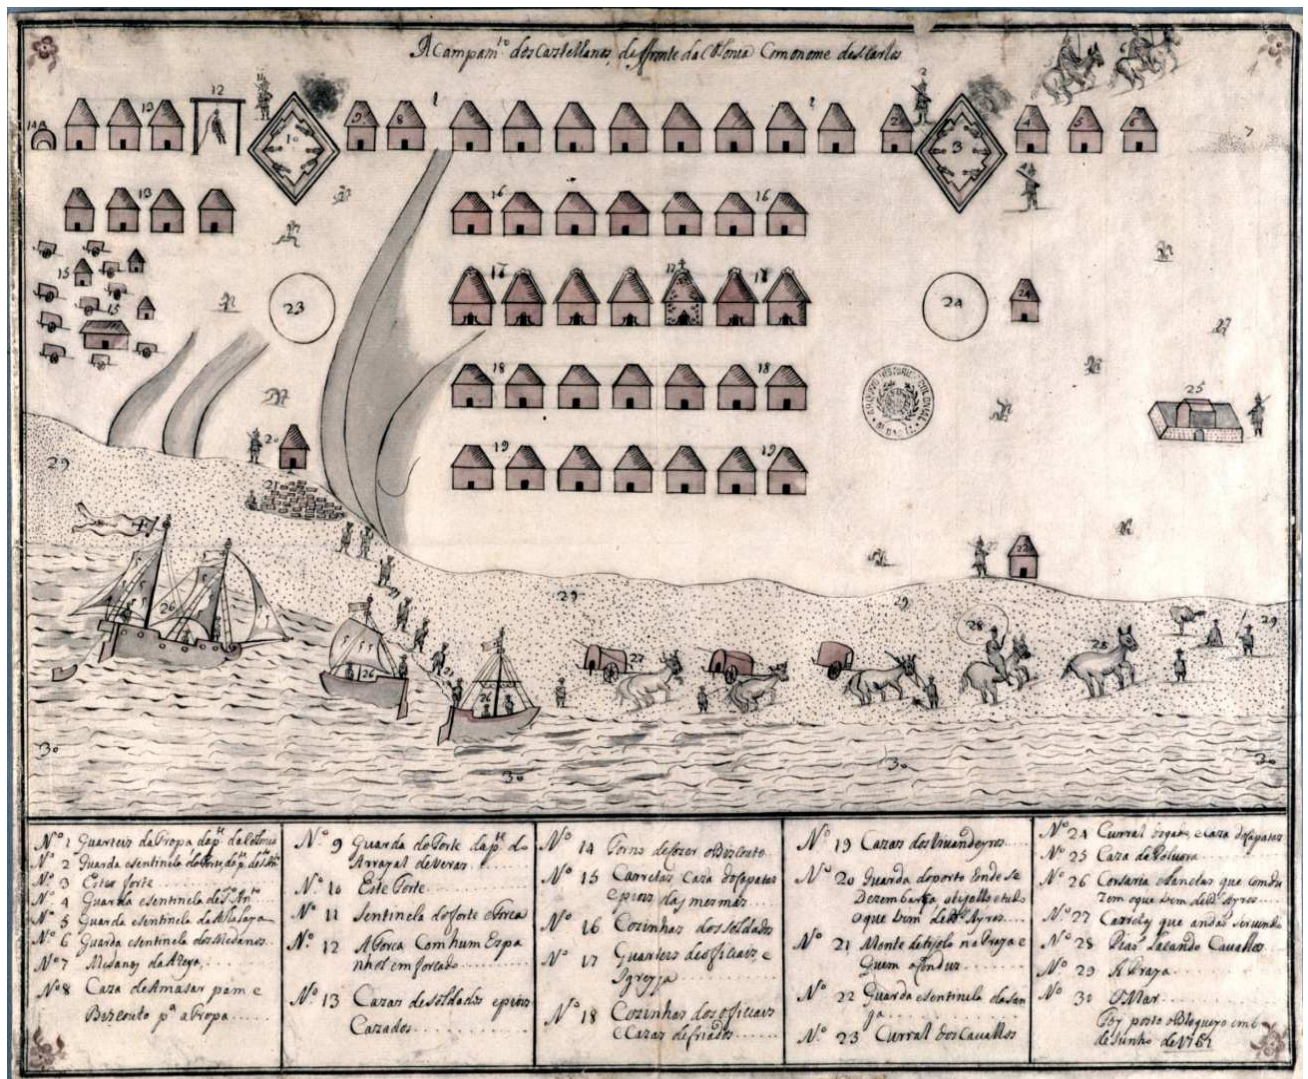 Acampam.to dos Castellanos, deffronte da Colonia Com o nome de S Carlos
N.º 1 Quarteis da Tropa, da p.te da Colonia
N.º 2 Guarda e sentinela do forte, da p.te
N.º 3 Este forte
N.º 4 Guarda e sentinela de S.to An.to
N.º 5 Guarda e sentinela da
N.º 6 Guarda e sentinela dos Medanos
N.º 7 Medanos da Areya
N.º 8 Caza de Amasar pam e
Biscouto p.ª a Tropa
N.º 9 Guarda do Forte da p.te do
Arrayal de Veras
N.º 10 Este Forte
N.º 11 Sentinela do forte e Forca
N.º 12 A Forca Com hum Espa
nhol emforcado
N.º 13 Cazas de soldados e pioins
Cazados
N.º 14 Forno de fazer o Biscouto
N.º 15 Carretas Caza do Capataz
e pioins das mesmas
N.º 16 Cozinhas dos soldados
N.º 17 Quarteis de oficiais e
Igreyja
N.º 18 Cozinhas dos oficiais
e Cazas de friados
N.º 19 Cazas dos Vivandeyros
N.º 20 Guarda do porto onde se
Dezembarca, otijollo e tudo
o que vem de B.s Ayres
N.º 21 Monte de tijolo na Praya e
quem o Conduz
N.º 22 Guarda e sentinela da san
ga
N.º 23 Curral dos Cavallos
N.º 24 Curral e Caza do Capataz
N.º 25 Caza da Polvora
N.º 26 Corsaria e Lanchas que Condu
zem o que vem de B.s Ayres
N.º 27 que andas servindo
N.º 28 Cavallos
N.º 29 A Praya
N.º 30 O Mar
Foy posto o Bloqueyo em 6
de Junho de 1761